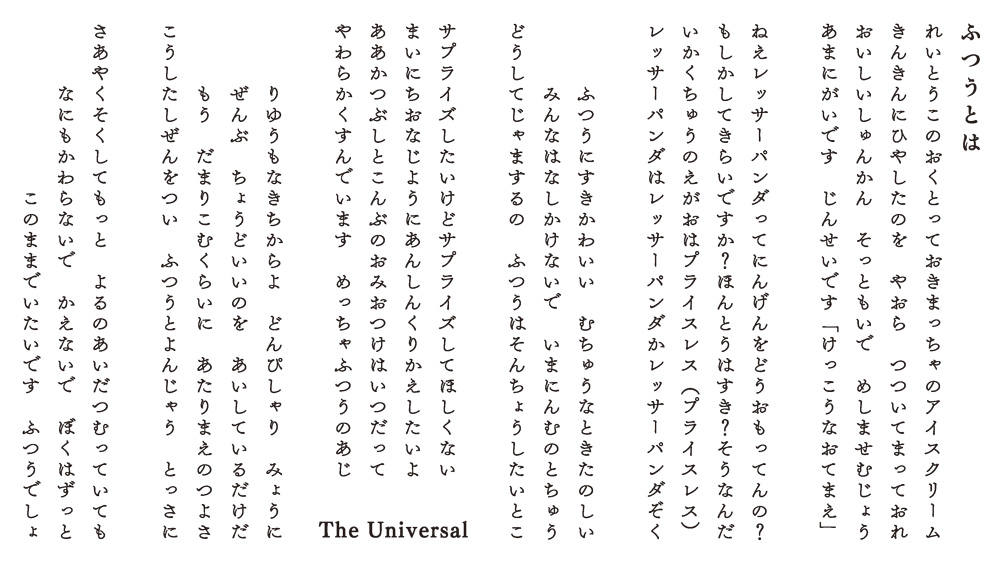 ふつうとは
れいとうこのおくとっておきまっちゃのアイスクリーム
きんきんにひやしたのを　やおら　つついてまっておれ
おいしいしゅんかん　そっともいで　めしませむじょう
あまにがいです　じんせいです「けっこうなおてまえ」
ねえレッサーパンダってにんげんをどうおもってんの？
もしかしてきらいですか？ほんとうはすき？そうなんだ
いかくちゅうのえがおはプライスレス（プライスレス）
レッサーパンダはレッサーパンダかレッサーパンダぞく
ふつうにすきかわいい　むちゅうなときたのしい
みんなはなしかけないで　いまにんむのとちゅう
どうしてじゃまするの　ふつうはそんちょうしたいとこ
サプライズしたいけどサプライズしてほしくない
まいにちおなじようにあんしんくりかえしたいよ
ああかつぶしとこんぶのおみおつけはいつだって
やわらかくすんでいます　めっちゃふつうのあじ
The Universal
りゆうもなきちからよ　どんぴしゃり　みょうに
ぜんぶ　ちょうどいいのを　あいしているだけだ
もう　だまりこむくらいに　あたりまえのつよさ
こうしたしぜんをつい　ふつうとよんじゃう　とっさに
さあやくそくしてもっと　よるのあいだつむっていても
なにもかわらないで　かえないで　ぼくはずっと
このままでいたいです　ふつうでしょ